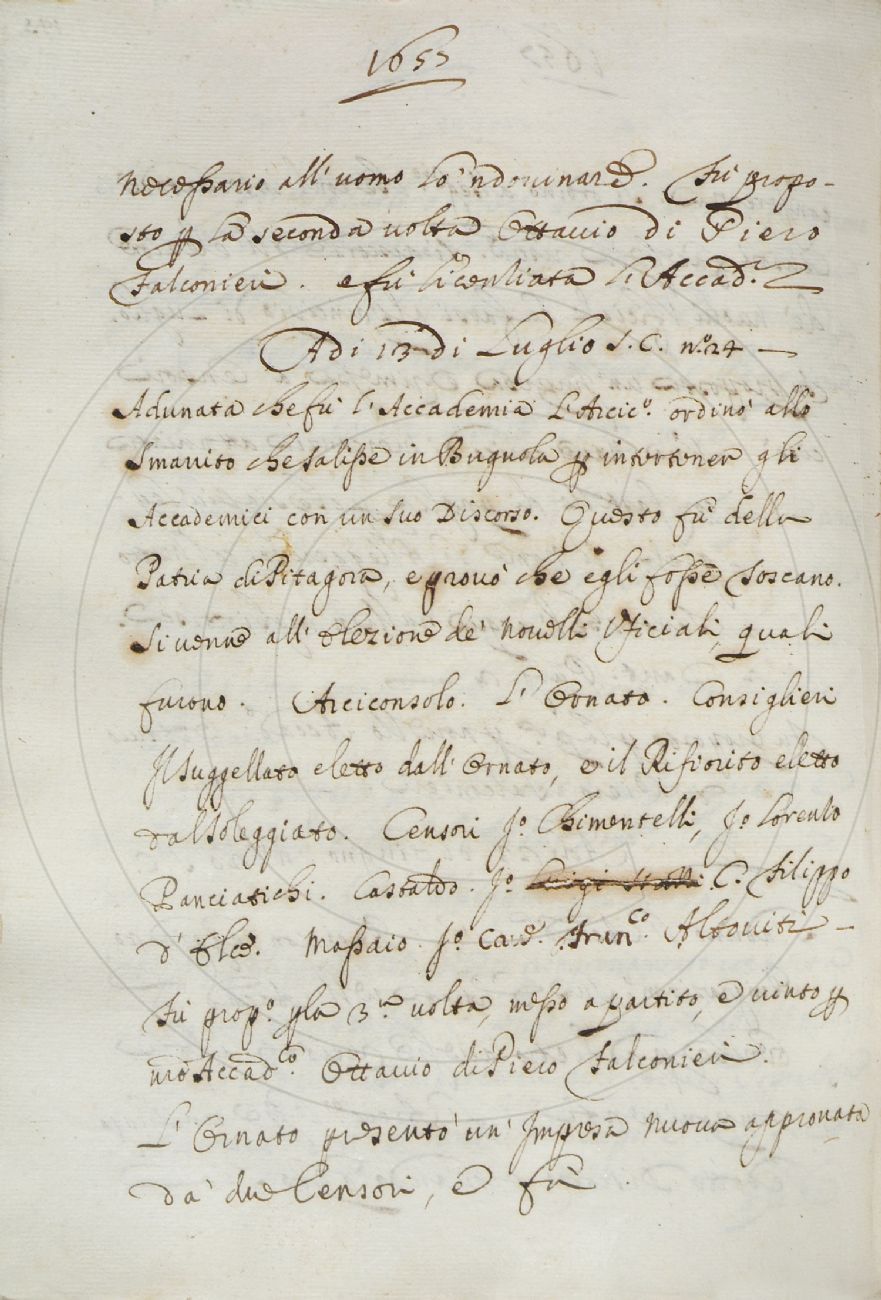 1655
necessario all'uomo lo 'ndovinare. Fù propo-
sto p la seconda volta Ottavio di Piero
Falconieri. e fù licenziata l'Accad.ª
Adi 13 di Luglio S. C. nº. 24 —
Adunata che fù l'Accademia l'Arcicº. ordinò allo
Smarrito che salisse in Bugnola p intertener gli
Accademici con un suo Discorso. Questo fù della
Patria di Pitagora, e provò che egli fosse Toscano.
Si venne all'Elezione de' novelli Uficiali, quali
furono. Arciconsolo. L'Ornato. Consiglieri
Il Suggellato eletto dall'Ornato, e il Rifiorito eletto
dal Soleggiato. Censori Jº. Chimentelli, Jº. Lorenzo
Panciatichi. Castaldo. Jº. C. Filippo
d'Elce. Massaio. Jº. Cav.e Fran.co Altoviti —
Fù propº. p la 3.ª volta, messo a partito, e vinto p
nrõ Accad.co Ottavio di Piero Falconieri.
L'Ornato presentò un'Impresa nuova approvata
dà due Censori, e fù